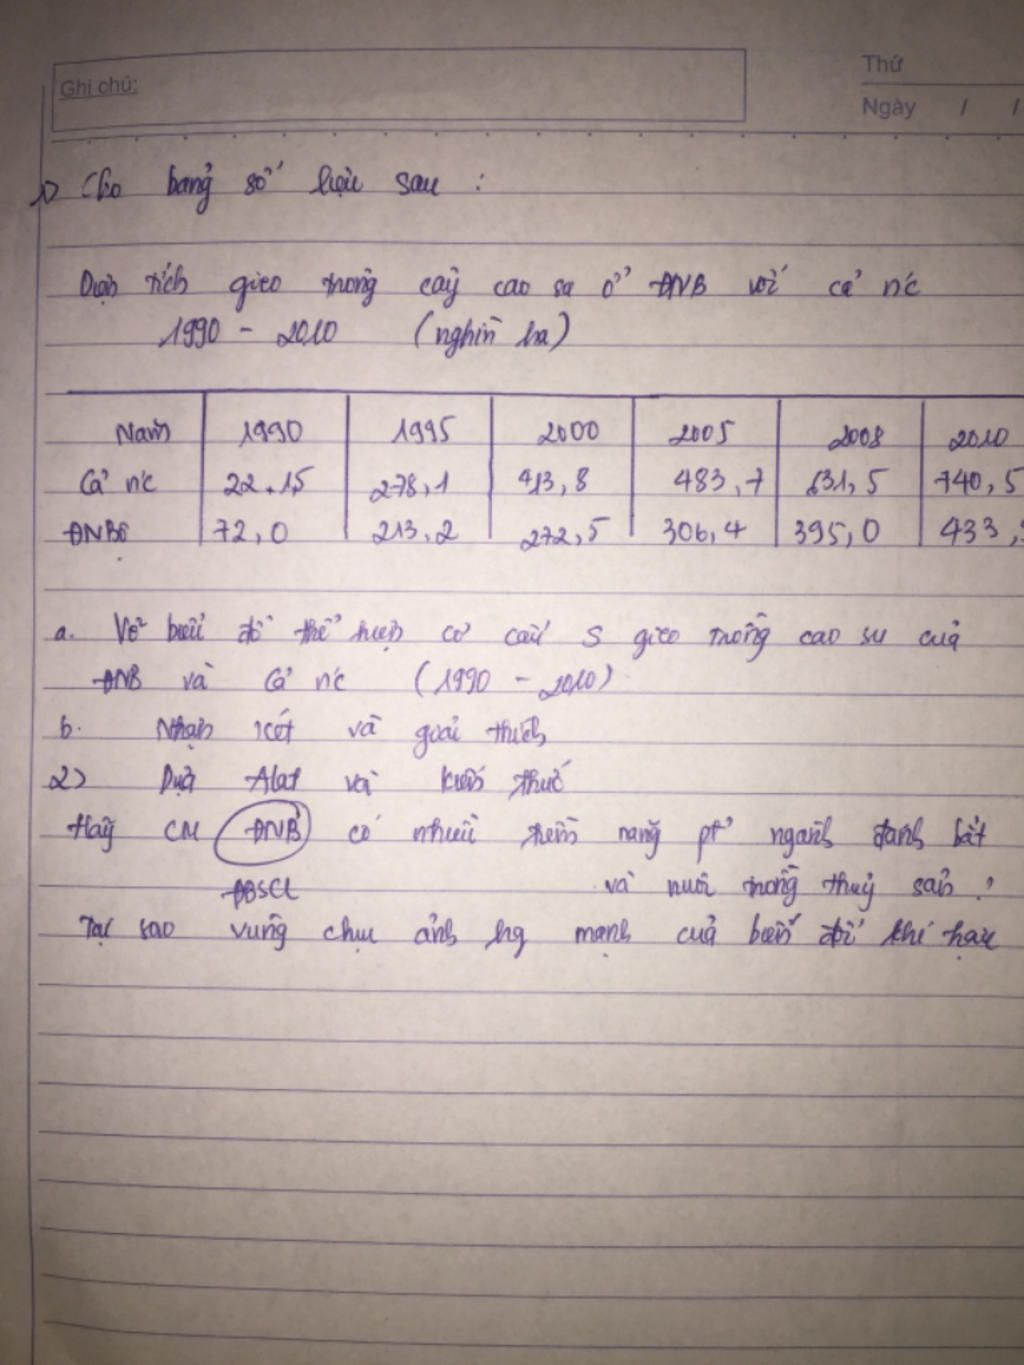 Ghi chú:
Thứ
Ngày / /
1) Cho bảng số liệu sau :
Diện tích gieo trồng cây cao su ở ĐNB với cả n'c
1990 - 2010 (nghìn ha)
Năm 1990 1995 2000 2005 2008 2010
Cả n'c 22.15 278,1 413,8 483,7 631,5 740,5
ĐNBộ 72,0 213,2 272,5 306,4 395,0 433,
a. Vẽ biểu đồ thể hiện cơ cấu S gieo trồng cao su của
ĐNB và Cả n'c (1990 - 2010)
b. Nhận xét và giải thích
2) Dựa Alat và kiến thức
Hãy CM ĐNB có nhiều tiềm năng pt ngành đánh bắt
ĐBSCL và nuôi trồng thuỷ sản ?
Tại sao vùng chịu ảnh hg mạnh của biến đổi khí hậu